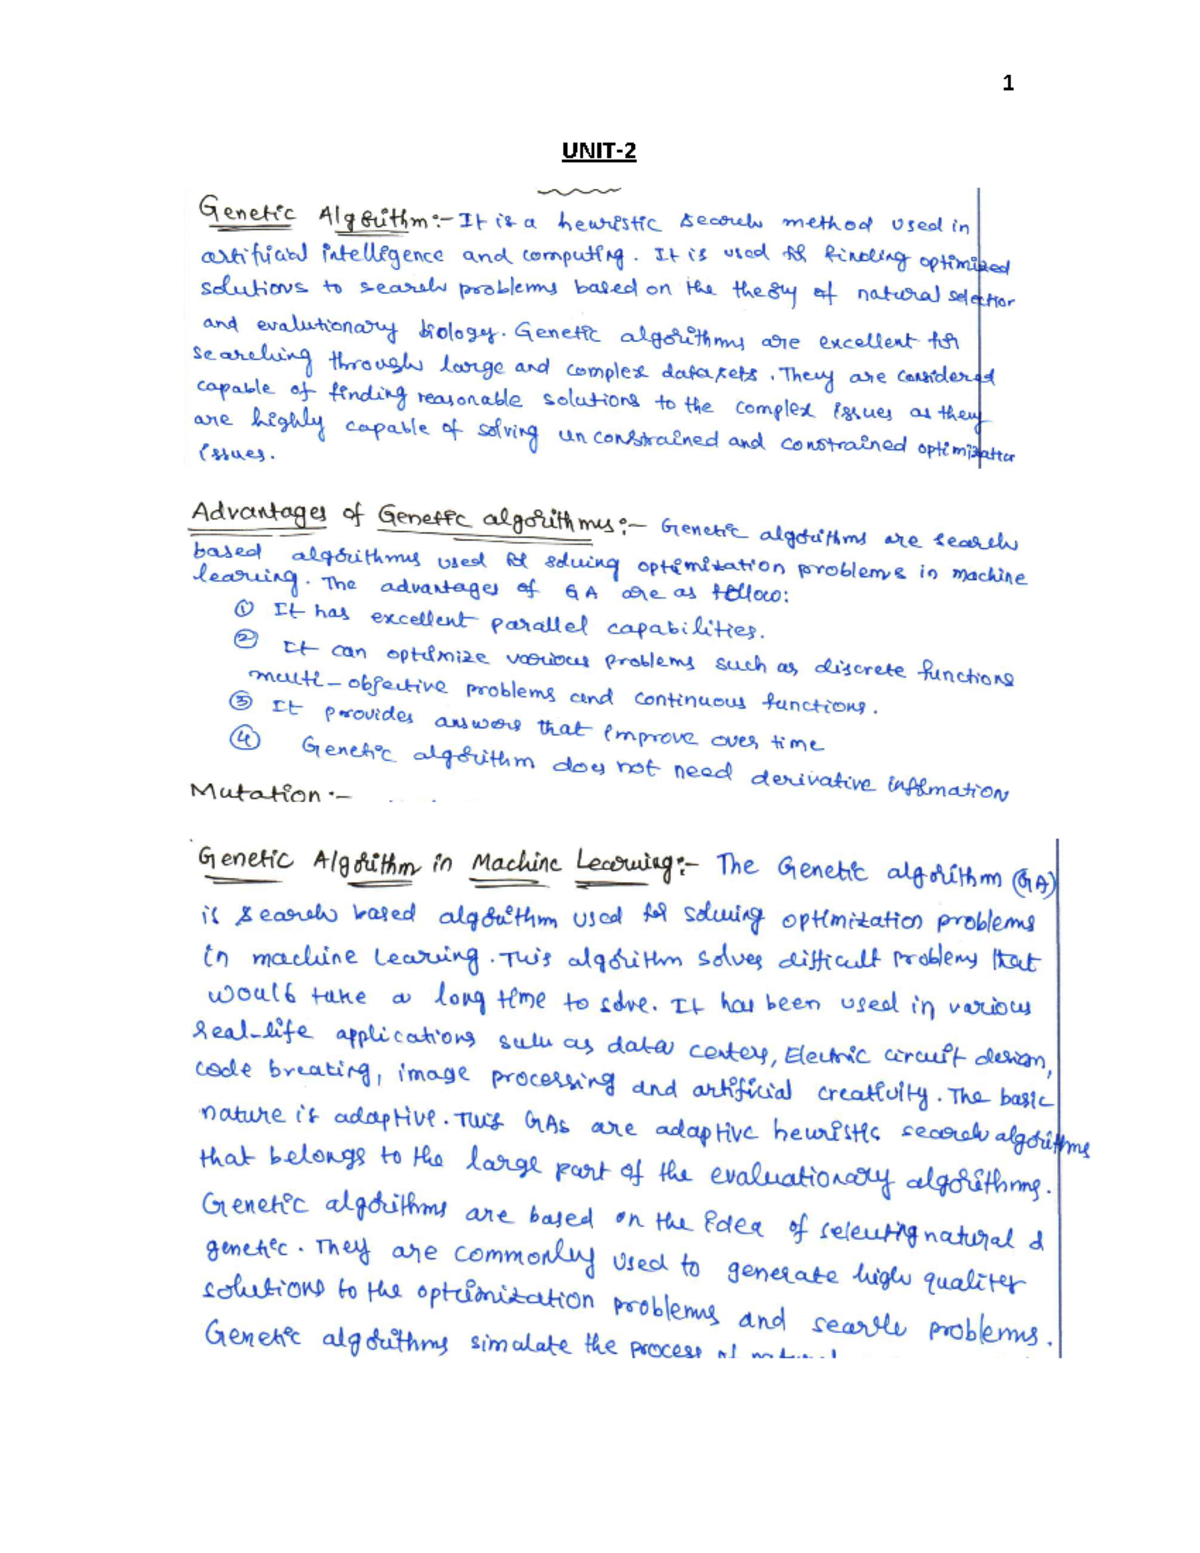 1
UNIT-2
Genetic Algorithm:- It is a heuristic search method used in
artificial intelligence and computing. It is used for finding optimized
solutions to search problems based on the theory of natural selection
and evalutionary biology. Genetic algorithms are excellent for
searching through large and complex datasets. They are considered
capable of finding reasonable solutions to the complex issues as they
are highly capable of solving unconstrained and constrained optimization
issues.
Advantages of Genetic algorithms:- Genetic algorithms are search
based algorithms used for solving optimization problems in machine
learning. The advantages of GA are as follow:
① It has excellent parallel capabilities.
② It can optimize various problems such as discrete functions
multi-objective problems and continuous functions.
③ It provides answers that improve over time
④ Genetic algorithm does not need derivative information
Mutation:-
Genetic Algorithm in Machine Learning:- The Genetic algorithm (GA)
is search based algorithm used for solving optimization problems
in machine learning. This algorithm solves difficult problems that
would take a long time to solve. It has been used in various
real-life applications such as data centers, Electric circuit design,
code breaking, image processing and artificial creativity. The basic
nature is adaptive. This GAs are adaptive heuristic search algorithms
that belongs to the large part of the evaluationary algorithms.
Genetic algorithms are based on the idea of selecting natural &
genetic. They are commonly used to generate high quality
solutions to the optimization problems and search problems.
Genetic algorithms simulate the process of natural